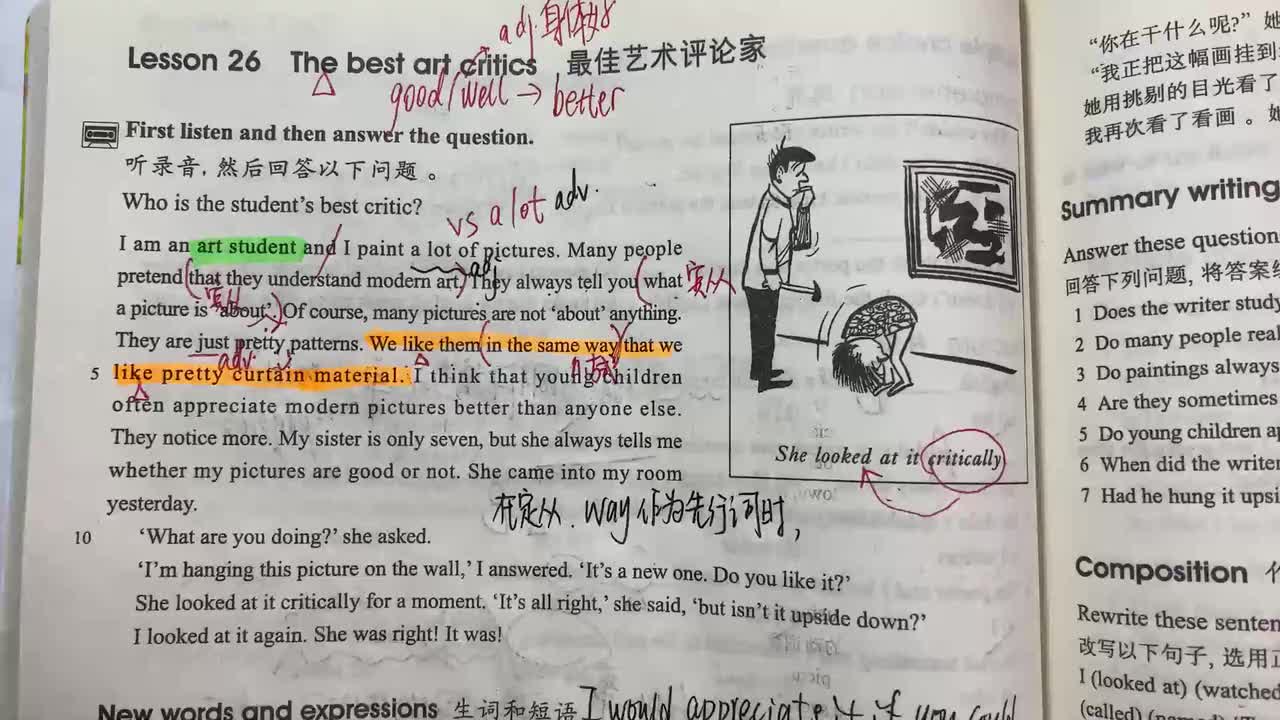 adj. 身体好
Lesson 26 The best art critics 最佳艺术评论家
good/well → better
First listen and then answer the question.
听录音,然后回答以下问题。
Who is the student's best critic?
vs a lot adv.
I am an art student and I paint a lot of pictures. Many people
adj
pretend that they understand modern art. They always tell you what
宾从
宾从
a picture is 'about'. Of course, many pictures are not 'about' anything.
They are just pretty patterns. We like them in the same way that we
adv.
5 like pretty curtain material. I think that young children
often appreciate modern pictures better than anyone else.
They notice more. My sister is only seven, but she always tells me
whether my pictures are good or not. She came into my room
yesterday.
在定从. way 作为先行词时,
10 'What are you doing?' she asked.
'I'm hanging this picture on the wall,' I answered. 'It's a new one. Do you like it?'
She looked at it critically for a moment. 'It's all right,' she said, 'but isn't it upside down?'
I looked at it again. She was right! It was!
She looked at it critically
New words and expressions 生词和短语
I would appreciate it if you could
"你在干什么呢?"
"我正把这幅画挂到
她用挑剔的目光看了
我再次看了看画。
Summary writing
Answer these question
回答下列问题, 将答案
1 Does the writer study
2 Do many people real
3 Do paintings always
4 Are they sometimes
5 Do young children ap
6 When did the writer
7 Had he hung it upsi
Composition
Rewrite these senten
改写以下句子, 选用
I (looked at) (watched
(called)